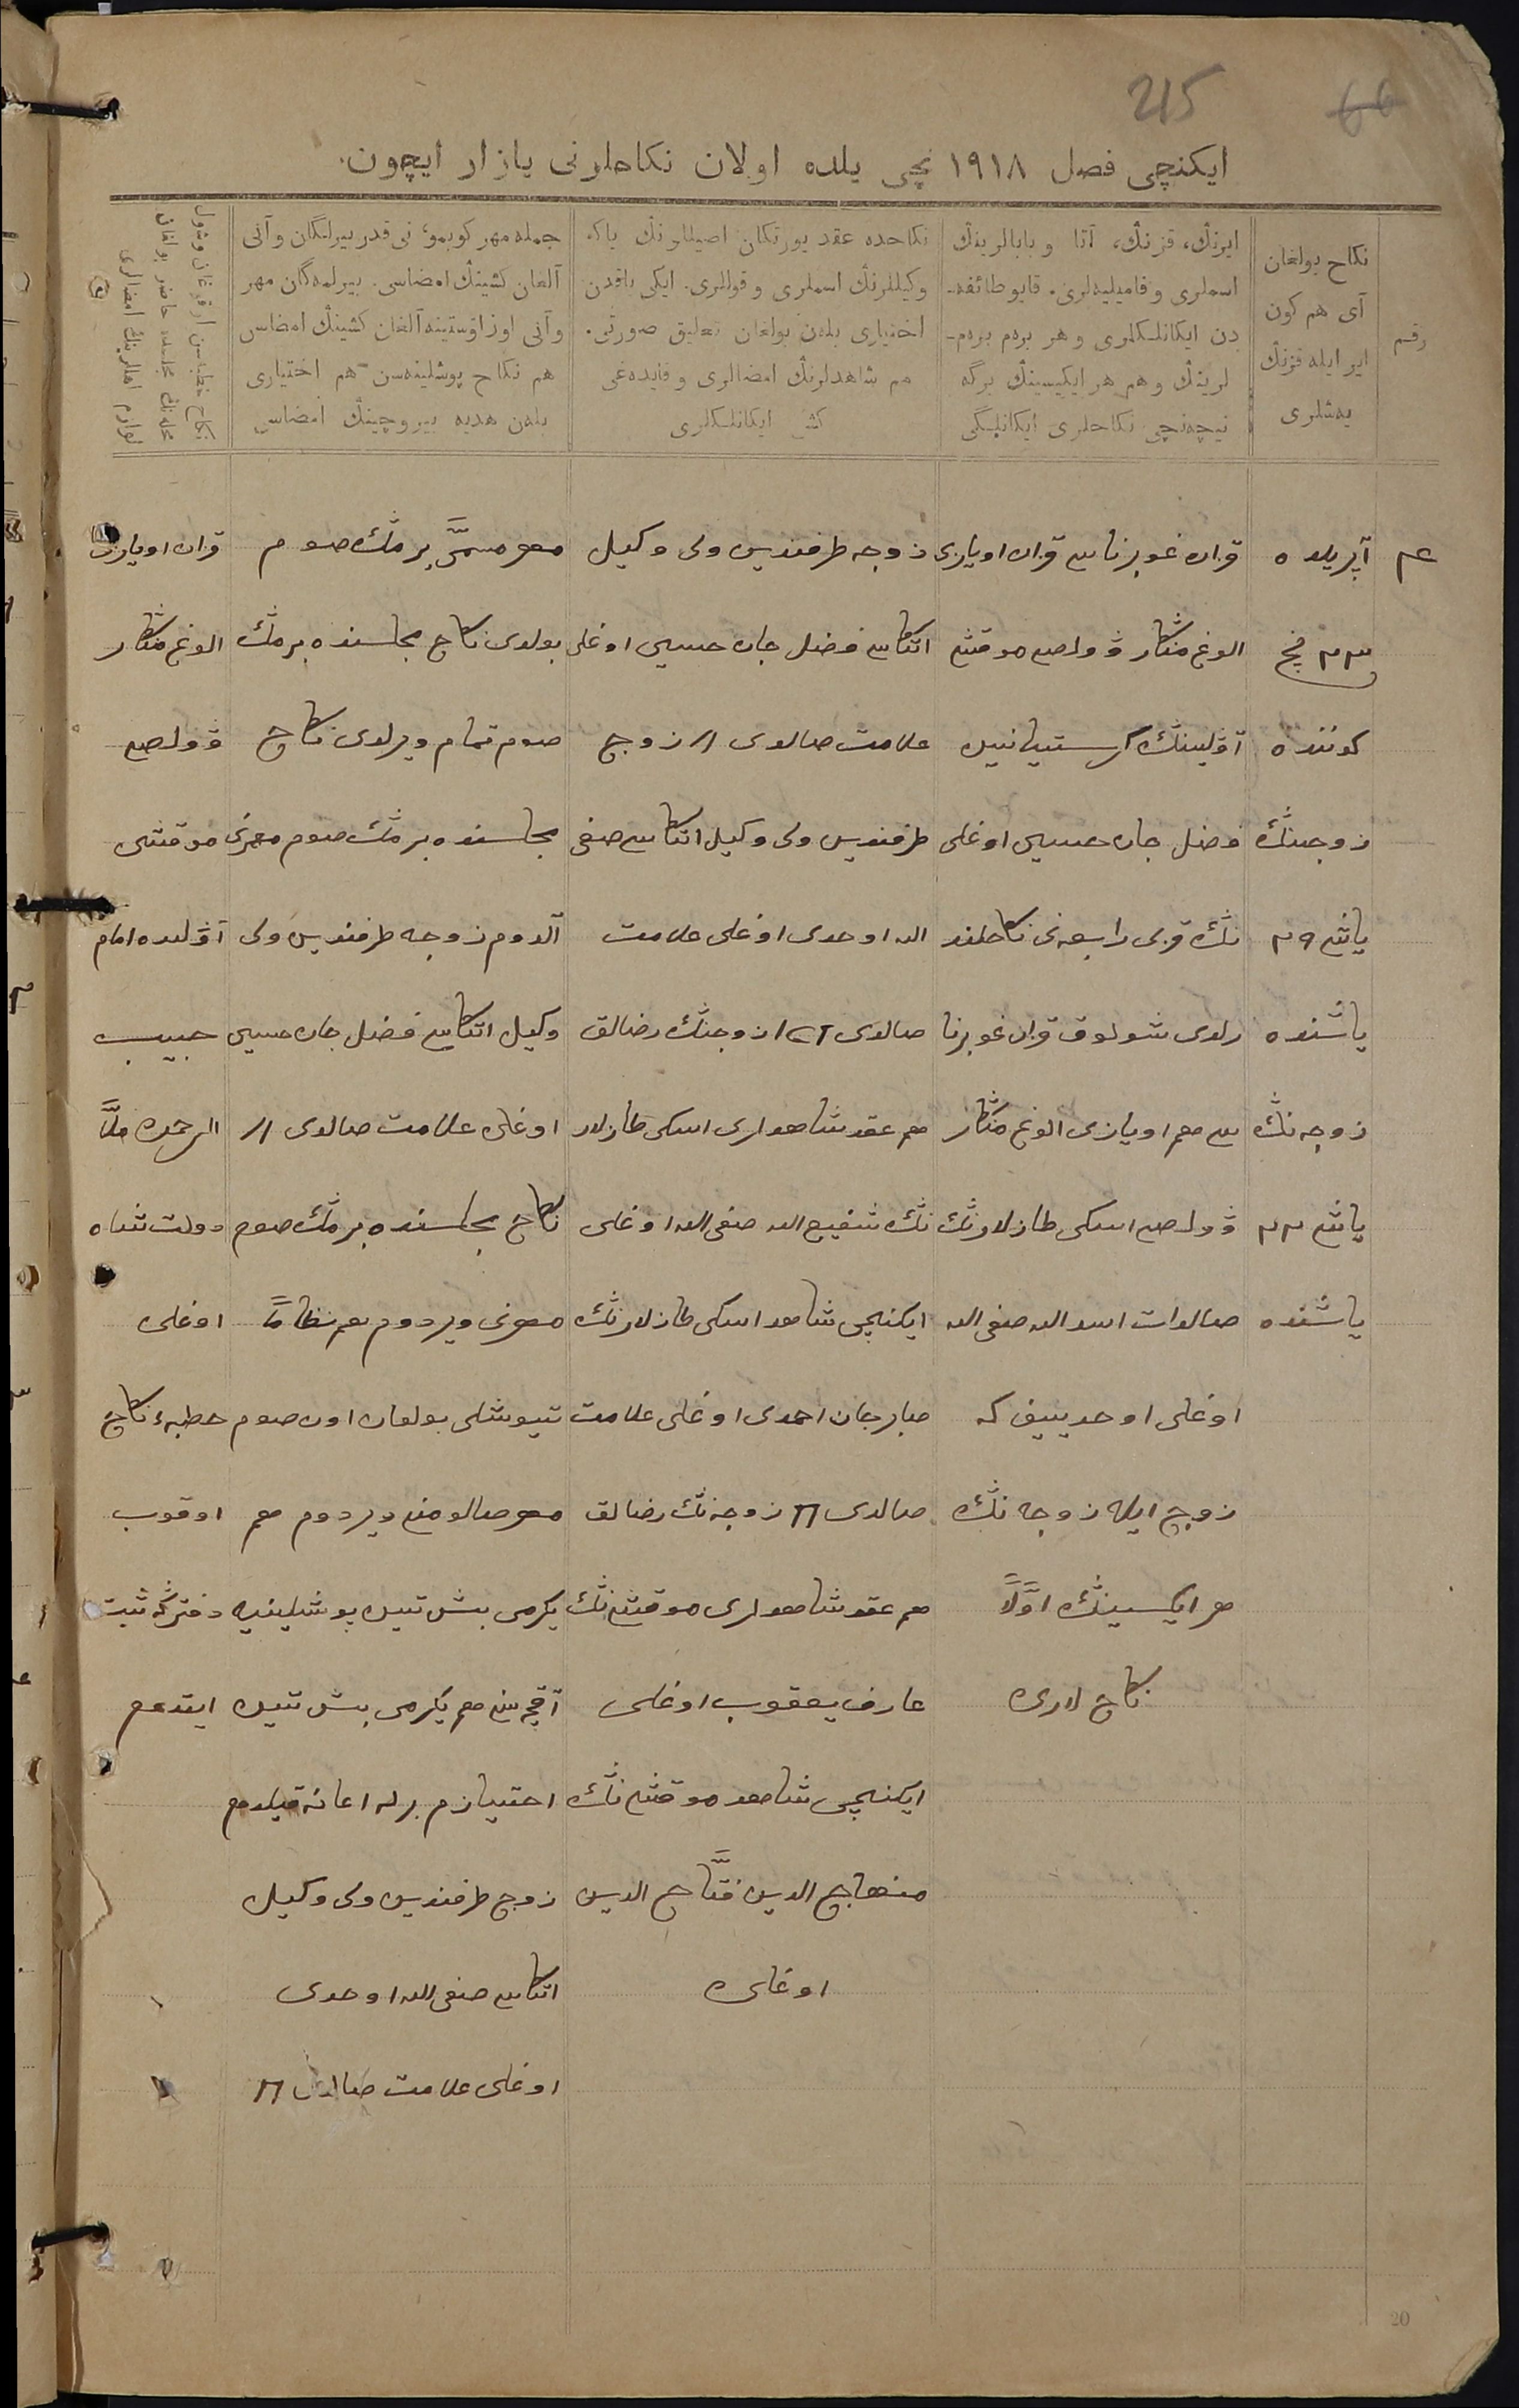 215
66
ایکنچی فصل ۱۹۱۸ نچی یلده اولان نکاحلرنی یازار ایچون.
رقم
نکاح بولغان
آی هم کون
ایر ایله قزنڭ
یەشلری
ایرنڭ، قزنڭ، آتا و بابالرینڭ
اسملری و فامیلیەلری. قایو طائفه-
دن ایکانلکلری و هر برەم برەم-
لرینڭ و هم هر ایکیسینڭ برگه
نیچەنچی نکاحلری ایکانلیگی
نکاحده عقد یورتکان اصیللرنڭ یاکه
وکیللرنڭ اسملری و قوللری. ایکی یاقدن
اختیاری بلەن بولغان تعلیق صورتی.
هم شاهدلرنڭ امضالری و قایدەغی
کشی ایکانلکلری
جمله مهر کوبموٴ نی قدر بیرلگان و آنی
آلغان کشینڭ امضاسی. بیرلمەگان مهر
و آنی اوز اوستینه آلغان کشینڭ امضاسی
هم نکاح پوشلینەسن هم اختیاری
بلەن هدیه بیروچینڭ امضاسی
نکاح خطبەسن اوقوغان وشول
محلەنڭ مجلسده حاضر بولغان
لوازم اهالرینڭ امضالری
۴
آپریلده
۲۳ نچی
کوننده
زوجننڭ
یاشی ۲۹
یاشنده
زوجەنڭ
یاشی ۲۲
یاشنده
قزان غوبرناسی قزان اویازی
الوغ منگار ڤولصی موقشی
آڤلینڭ کرستیانین
فضل جان حسین اوغلی
نڭ قزی رابعەنی نکاحلند
رلدی شولوق قزان غوبرنا
سی هم اویازی الوغ منگار
ڤولصی اسکی طازلارنڭ
صالدات اسد الله صفی الله
اوغلی اوحدییف که
زوج ایله زوجه نڭ
هر ایکیسینڭ اوّلاً
نکاح لاری
زوجه طرفندین ولی وکیل
اتکاسی فضل جان حسین اوغلی
علامت صالدی //زوج
طرفندین ولی وکیل اتکاسی صفی
الله اوحدی اوغلی علامت
صالدی زوجنڭ رضالق
هم عقد شاهدلری اسکی طازلار
نڭ شفیع الله صفی الله اوغلی
ایکنچی شاهد اسکی طازلارنڭ
صابرجان احمدی اوغلی علامت
صالدی П زوجه نڭ رضالق
هم عقد شاهدلری موقشی نڭ
عارف یعقوب اوغلی
ایکنچی شاهد موقشی نڭ
منهاج الدین فتّاح الدین
اوغلی
مهر مسمّی بر مڭ صوم
بولدی نکاح مجلسنده بر مڭ
صوم تمام ویرلدی نکاح
مجلسنده بر مڭ صوم مهرنی
آلدوم زوجه طرفندین ولی
وکیل اتکاسی فضل جان حسین
اوغلی علامت صالدی //
نکاح مجلسنده بر مڭ صوم
مهرنی ویردوم هم نظاماً
تیوشلی بولغان اون صوم
مهر صالومنی ویردوم هم
یکرمی بش تیین پوشلینیه
آقچه سی هم یکرمی بش تیین
اختیارم برله اعانه قیلدم
زوج طرفندین ولی وکیل
اتکاسی صفی الله اوحدی
اوغلی علامت صالدی П
قزان اویازی
الوغ منگار
ڤولصی
موقشی
آڤلده امام
حبیب
الرحمن ملّا
دولت شاه
اوغلی
خطبهٴ نکاح
اوقوب
دفترگه ثبت
ایتدم
20